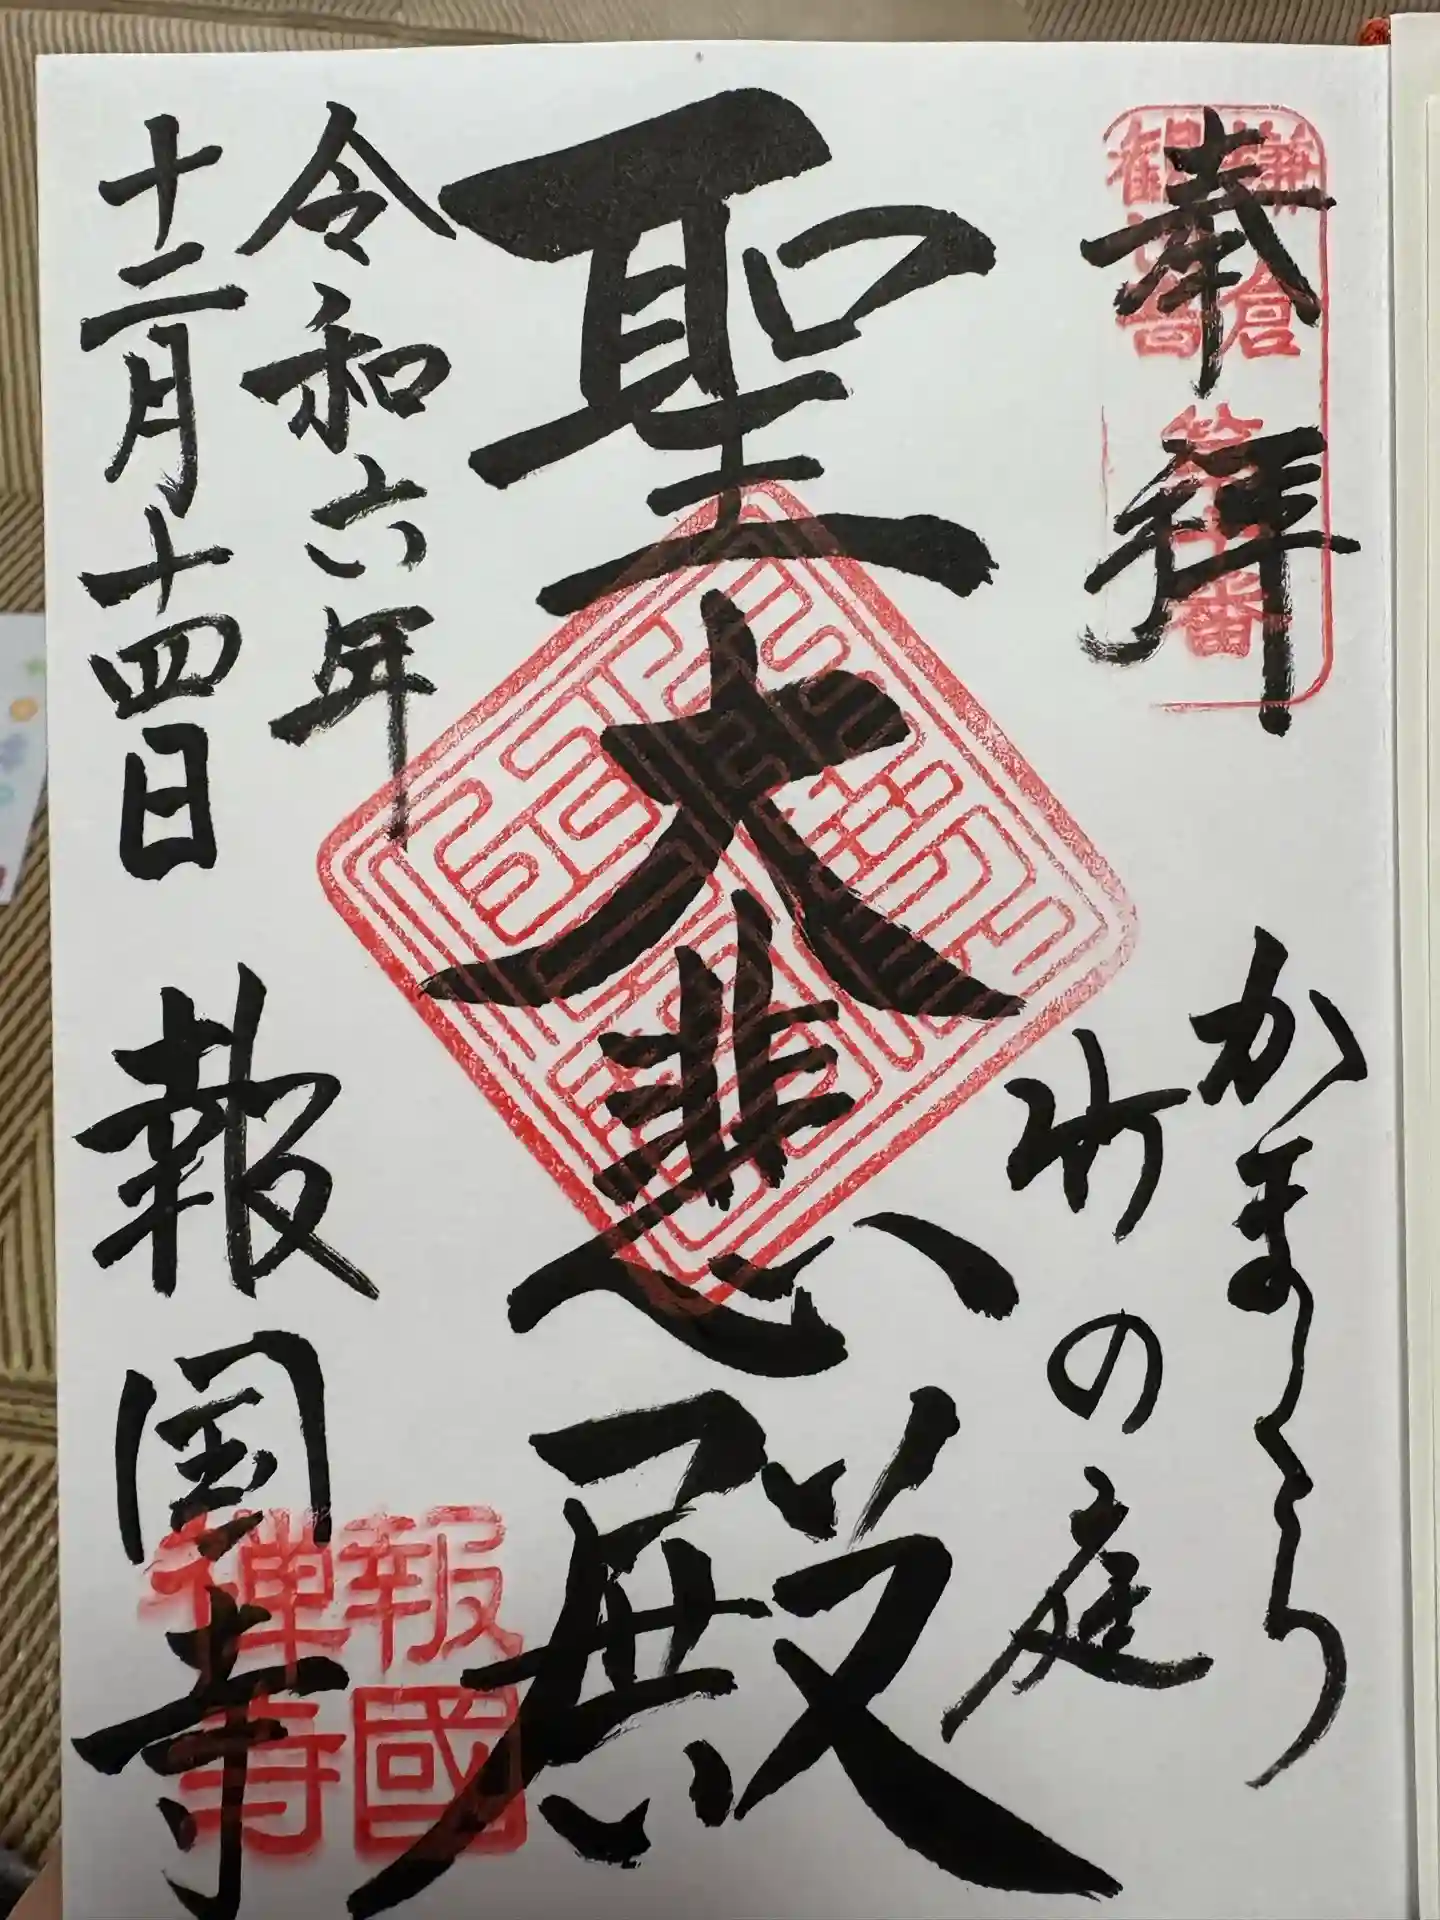 奉拝
鎌倉
観世音
第十番
かまくら
竹の庭
聖大悲殿
令和六年
十二月十四日
報国寺
報國
禅寺